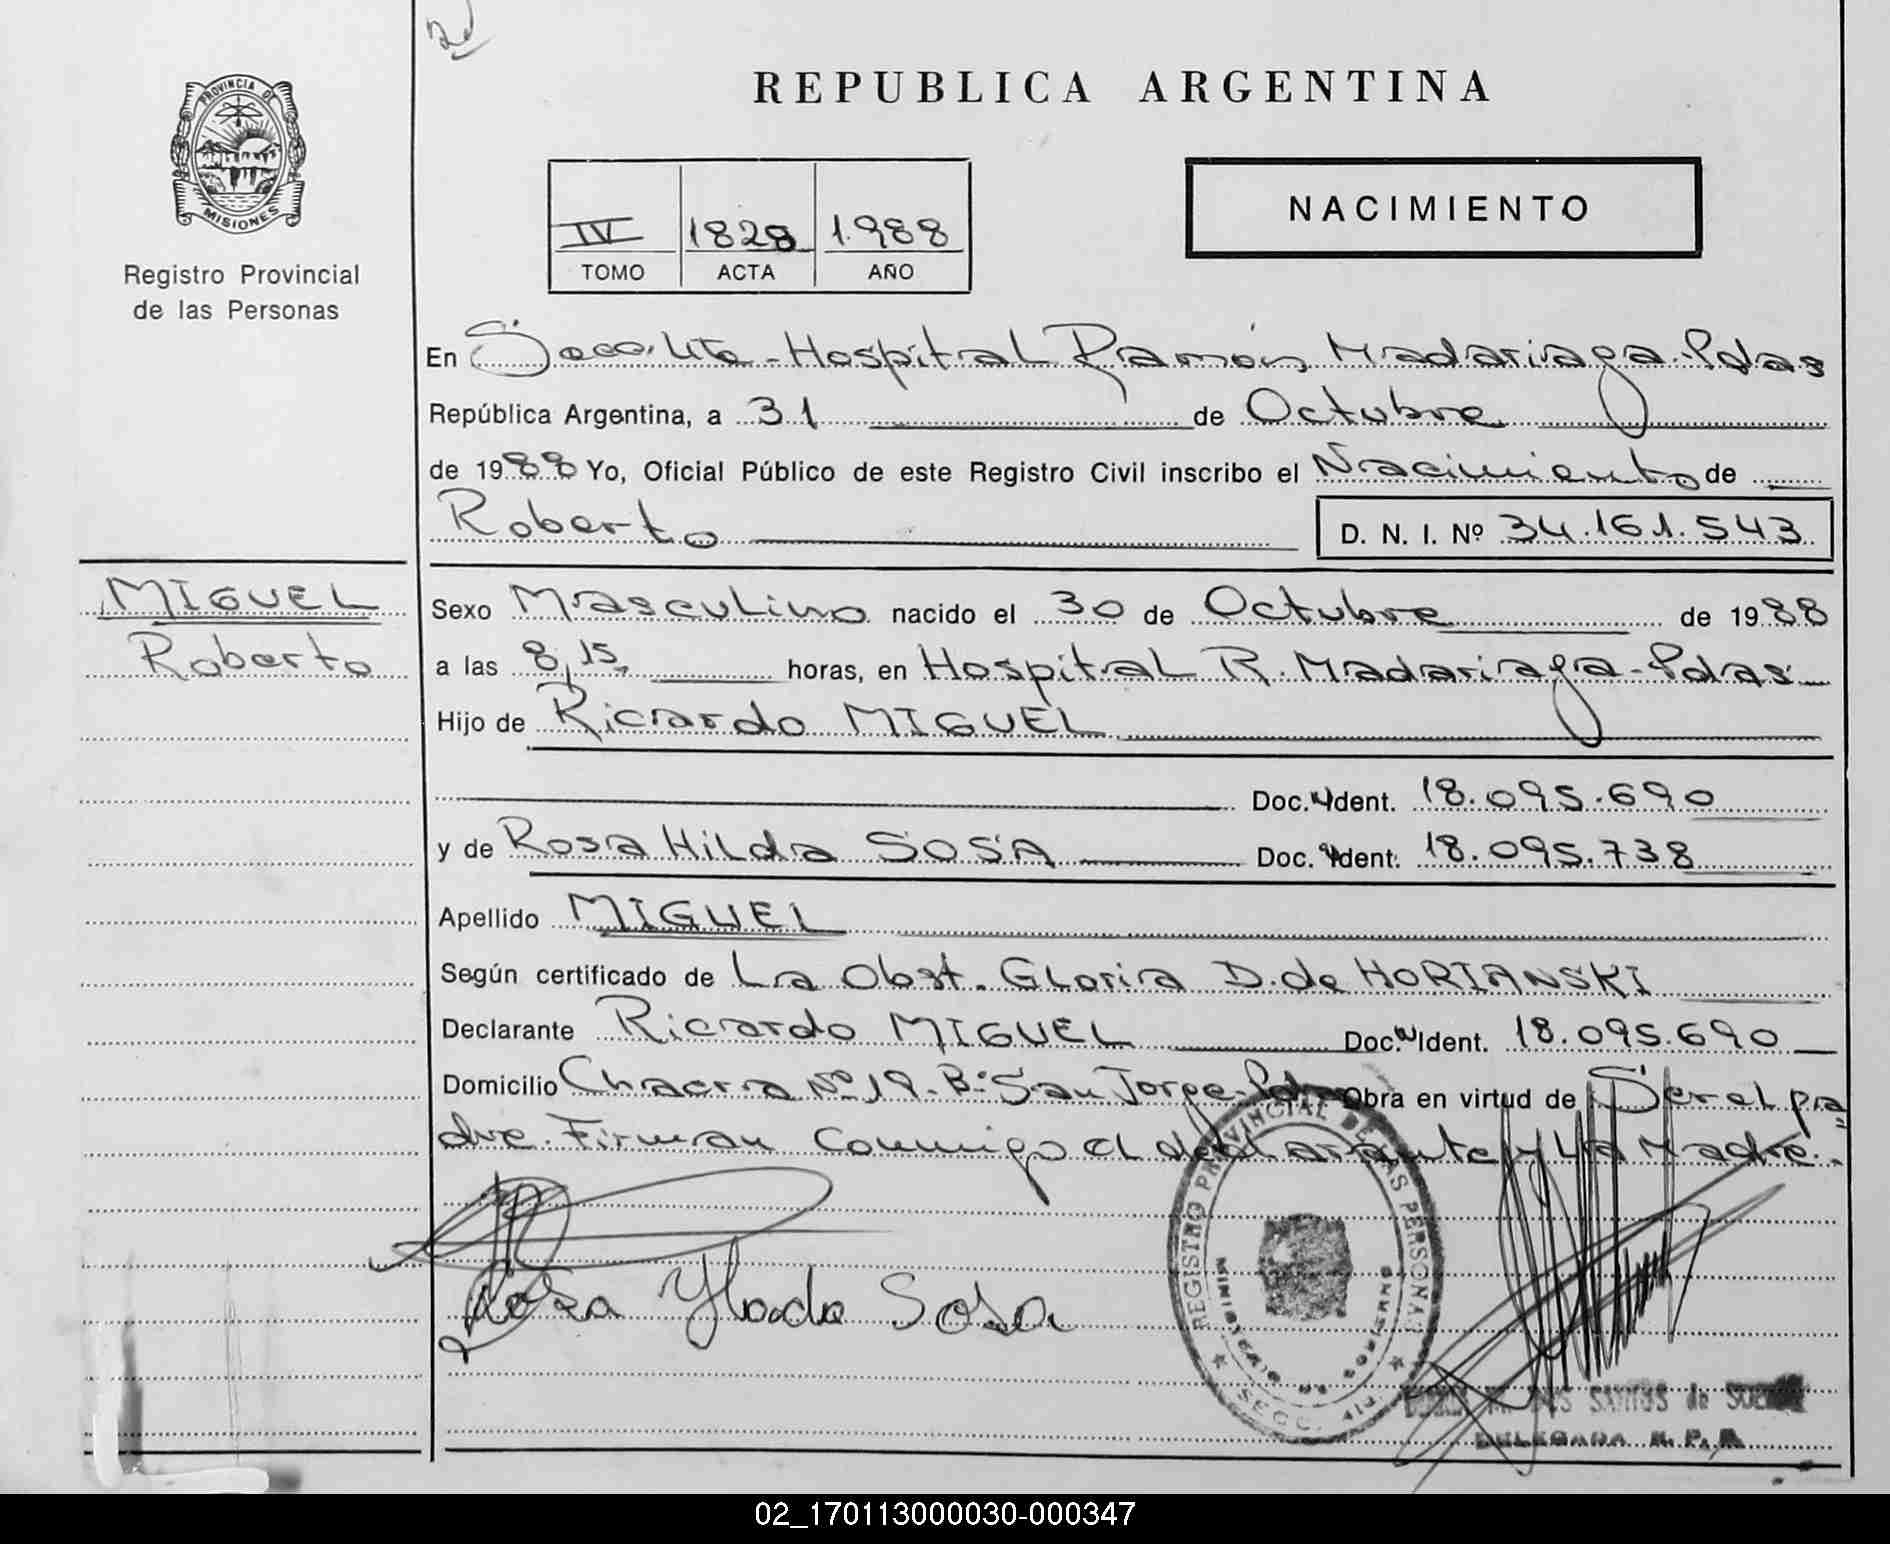 PROVINCIA DE
MISIONES
Registro Provincial
de las Personas
MIGUEL
Roberto
REPUBLICA ARGENTINA
IV 1828 1.988
TOMO ACTA AÑO
NACIMIENTO
En Secc. 4ta - Hospital Ramón Madariaga - Pdas
República Argentina, a 31 de Octubre
de 1988 Yo, Oficial Público de este Registro Civil inscribo el Nacimiento de
Roberto D. N. I. Nº 34.161.543
Sexo Masculino nacido el 30 de Octubre de 1988
a las 8,15 horas, en Hospital R. Madariaga - Pdas
Hijo de Ricardo MIGUEL
Doc. Ident. 18.095.690
y de Rosa Hilda SOSA Doc. Ident. 18.095.738
Apellido MIGUEL
Según certificado de La Obst. Gloria D. de HORIANSKI
Declarante Ricardo MIGUEL Doc. Ident. 18.095.690
Domicilio Chacra Nº 19 - Bº San Jorge - Pdas Obra en virtud de Ser el pa
dre. Firman conmigo el declarante y La Madre.
Rosa Ylda Sosa
REGISTRO PROVINCIAL DE LAS PERSONAS
MINISTERIO DE GOBIERNO
SECC. 4ta
DOS SANTOS de
DELEGADA R. P. P.
02_170113000030-000347